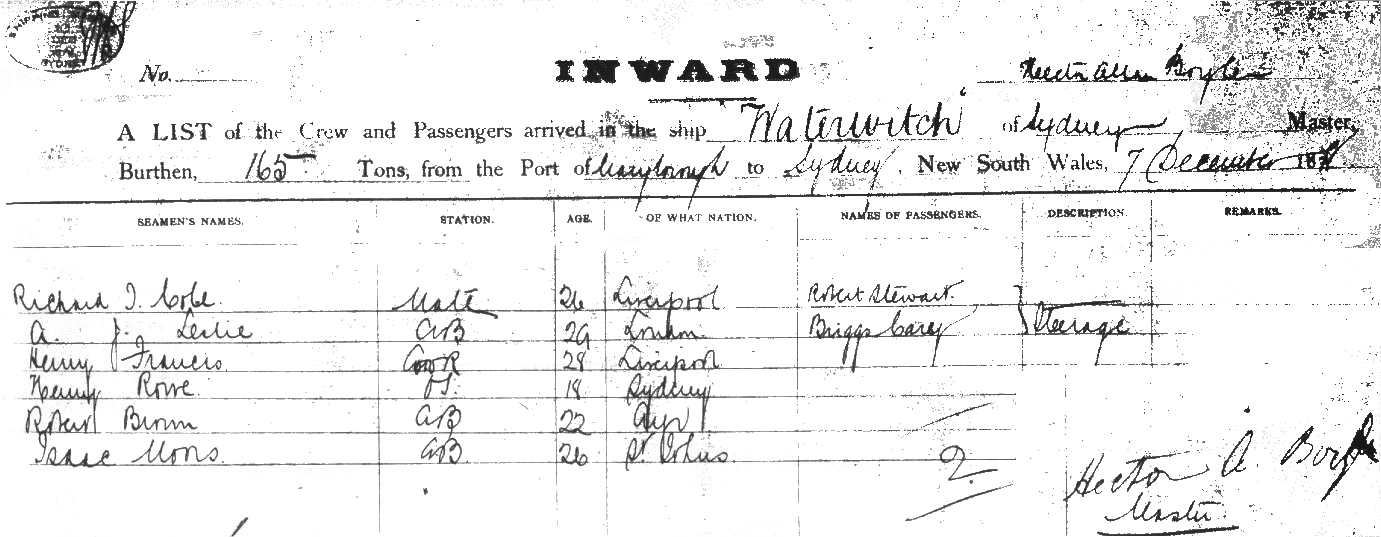 No.
INWARD
Hector Allan
A LIST of the Crew and Passengers arrived in the ship "Waterwitch" of Sydney Master,
Burthen, 165 Tons, from the Port of Maryborough to Sydney, New South Wales, 7 December 18
SEAMEN'S NAMES. STATION. AGE. OF WHAT NATION. NAMES OF PASSENGERS. DESCRIPTION. REMARKS.
Richard Mate 26 Liverpool Robert Stewart.
A. J. Leslie AB 29 Briggs Carey } Steerage
Henry Francis Cook 28 Liverpool
Henry Rowe 18 Sydney
Robert Brown AB 22 Ayr
Isaac AB 26 St Johns. 2.
Hector A.
Master